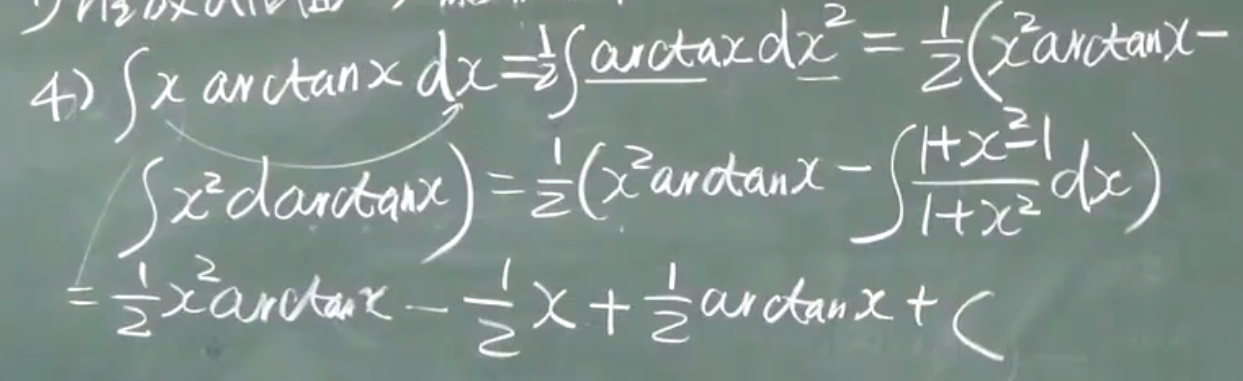 4) ∫x arctanx dx = ½∫arctax dx² = ½(x²arctanx −
∫x²darctanx) = ½(x²arctanx − ∫(1+x²−1)/(1+x²) dx)
= ½x²arctanx − ½x + ½arctanx + C